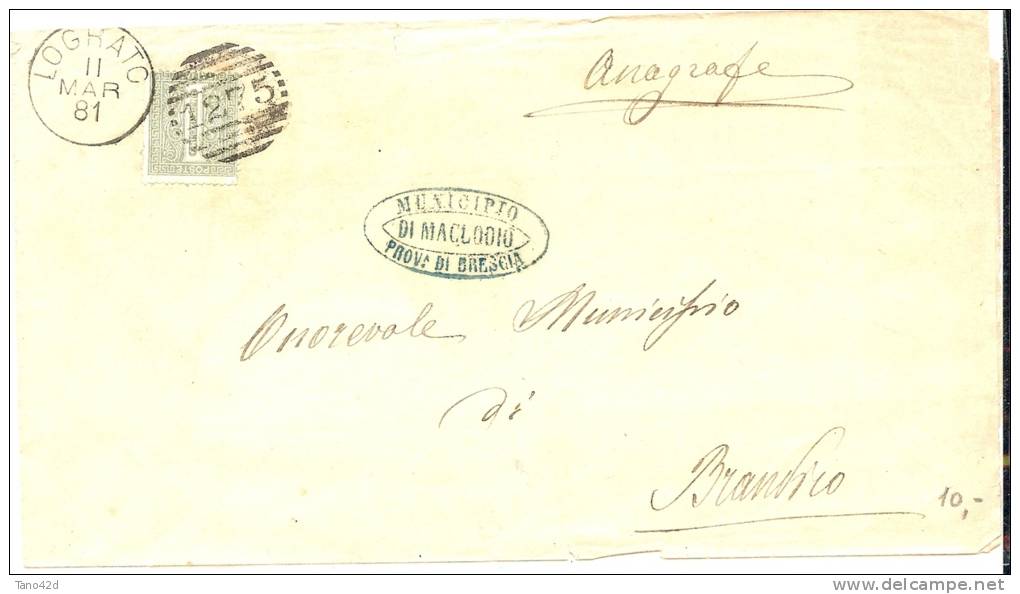 LOGRATO
11
MAR
81
1275
POSTE
Anagrafe
MUNICIPIO
DI MACLODIO
PROVA DI BRESCIA
Onorevole Municipio
di
Brandico
10,-
Tano42d
www.delcampe.net